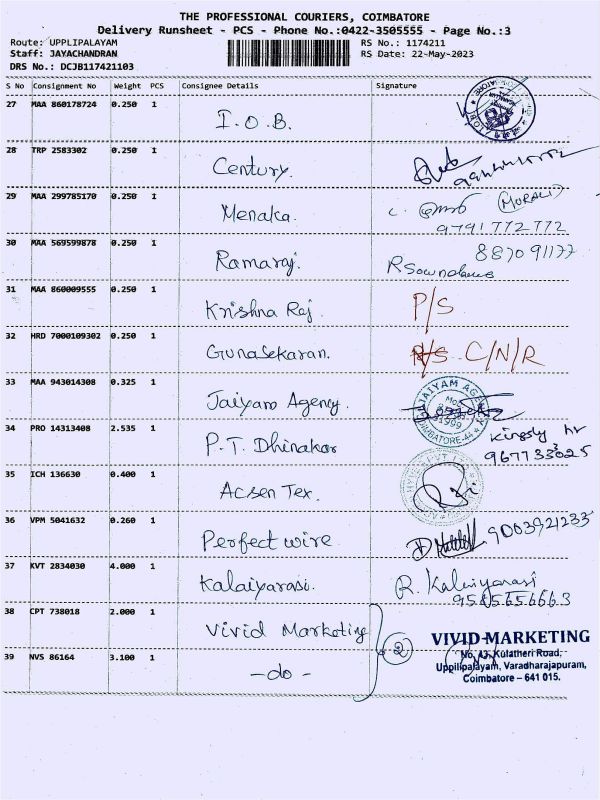 THE PROFESSIONAL COURIERS, COIMBATORE
Delivery Runsheet - PCS - Phone No.:0422-3505555 - Page No.:3
Route: UPPLIPALAYAM RS No.: 1174211
Staff: JAYACHANDRAN RS Date: 22-May-2023
DRS No.: DCJB117421103
S No Consignment No Weight PCS Consignee Details Signature
27 MAA 860178724 0.250 1 I.O.B.
28 TRP 2583302 0.250 1 Century.
29 MAA 299785170 0.250 1 Menaka. (MURALI)
9791772772
30 MAA 569599878 0.250 1 Ramaraj. 887091177
R Soundar
31 MAA 860009555 0.250 1 Krishna Raj P/S
32 HRD 7000109302 0.250 1 Gunasekaran. C/N/R
33 MAA 943014308 0.325 1 Jaiyam Agency. JAIYAM AGENCY COIMBATORE-44
34 PRO 14313408 2.535 1 P.T. Dhinakar Kingsly
9677333025
35 ICH 136630 0.400 1 Acsen Tex.
36 VPM 5041632 0.260 1 Perfect wire. 9003921233
37 KVT 2834030 4.000 1 Kalaiyarasi. R. Kalaiyarasi
38 CPT 738018 2.000 1 Vivid Marketing 2 VIVID MARKETING
No. 43, Kulatheri Road,
39 NVS 86164 3.100 1 -do- Uppilipalayam, Varadharajapuram,
Coimbatore – 641 015.